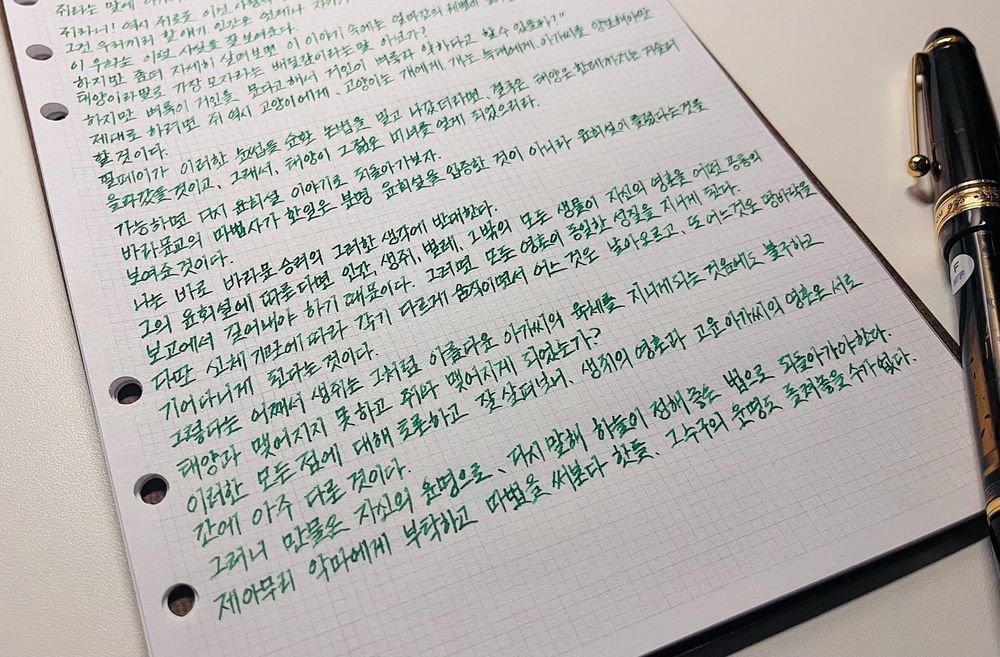 쥐라는 말에
쥐라니! 역시 쥐로군. 이건 사람의
그건 우리끼리 할 얘기. 인간은 언제나 자기가
이 우화는 이런 사실을 잘 보여준다.
하지만 좀더 자세히 살펴보면 이 이야기 속에는 얼마간의 궤변이
태양이라말로 가장 모자라는 배필감이라는 말 아닌가?
하지만 벼룩이 거인을 문다고해서 거인이 벼룩과 약하다고 할수 있을까?"
제대로 하려면 쥐 역시 고양이에게, 고양이는 개에게, 개는 늑대에게, 아가씨를 양보해야만
할 것이다.
필페이가 이러한 순환 논법을 밀고 나갔더라면, 결국은 태양은 한테까지는 다슬러
올라갔을것이고, 그래서, 태양이 그 젊은 미녀를 얻게 되었으리라.
가능하면 다시 윤회설 이야기로 되돌아가보자.
바라문교의 마법사가 한일은 분명 윤회설을 입증한 것이 아니라 윤회설이 틀렸다는것을
보여준 것이다.
나는 바로 바라문 승려의 그러한 생각에 반대한다.
그의 윤회설에 따른다면 인간, 생쥐, 벌레, 그밖의 모든 생물이 자신의 영혼을 어떤 공동의
보고에서 길어내야 하기 때문이다. 그러면 모든 영혼이 동일한 성질을 지니게 된다.
다만 신체 기관에 따라 각기 다르게 움직이면서 어느 것은 날아오르고, 또 어느것은 땅바닥을
기어다니게 된다는 것이다.
그렇다는 어째서 생쥐는 그처럼 아름다운 아가씨의 육체를 지니게되는 것음에도 불구하고
태양과 맺어지지 못하고 쥐와 맺어지게 되었는가?
이러한 모든점에 대해 토론하고 잘 살펴보라. 생쥐의 영혼과 고운 아가씨의 영혼은 서로
간에 아주 다른 것이다.
그러니 만물은 자신의 운명으로, 다시말해 하늘이 정해 놓은 법으로 되돌아가야한다.
제아무리 악마에게 부탁하고 마법을 써본다 한들, 그누구의 운명도 돌려놓을 수가없다.
F